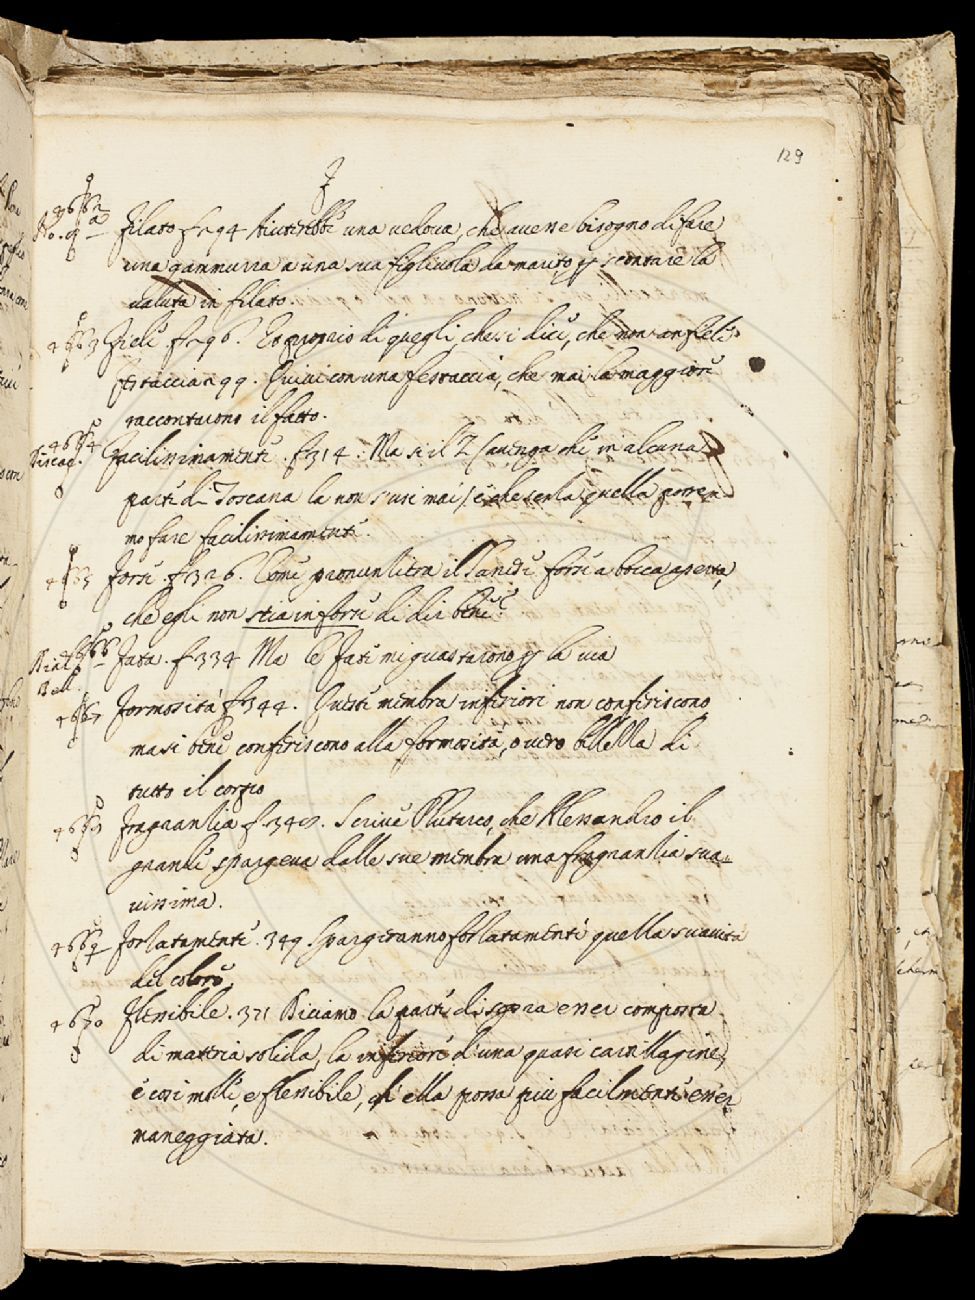 129
F
Filato f. 294 Aiuterebbe una vedova, che avesse bisogno di fare
una gammurra a una sua figliuola da marito p scontare la
valuta in filato.
4663 Fiele f. 296. È proprio di quegli, che si dice, che non an fiele
Festaccia 299. Quivi con una festaccia, che mai la maggiore
raccontarono il fatto.
4664 Facilissimamente. f. 314. Ma se il Z (avenga che in alcuna
parte di Toscana la non s'usi mai) è che senza quella possia
mo fare facilissimamente.
4665 Forse. f. 326. forse a bocca aperta,
che egli non stia in forse di dir bene?
4666 Fata. f. 334 Ma le Fate mi guastarono p la via
4667 Formosità f. 344. Queste membra inferiori non conferiscono
ma si bene conferiscono alla formosità, o vero bellezza di
tutto il corpo
Fragranzia f. 348. Scrive Plutarco, che Alessandro il
grande spargeva dalle sue membra una fragranzia sua-
vissima.
4669 Forzatamente. 349. Spargeranno forzatamente quella suavità
del colore
4670 Flessibile. 371 Diciamo la parte di sopra esser composta
di materia solida, la inferiore d'una quasi cartillagine,
e così molle, e flessibile, ch'ella possa piu facilmente esser
maneggiata.